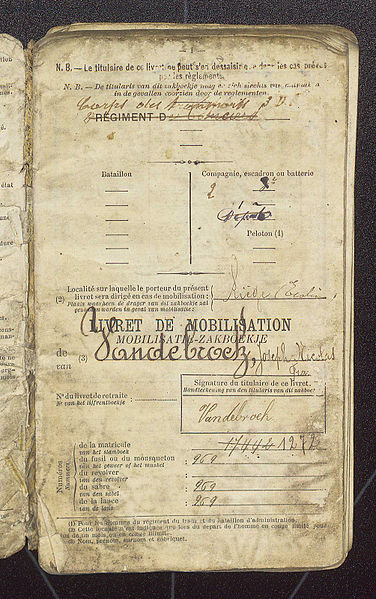 N. B. — Le titulaire de ce livret ne peut s'en dessaisir que dans les cas prévus
par les règlements.
N. B. — De titularis van dit zakboekje mag er zich slechts van ontmaken
in de gevallen voorzien door de reglementen.
Corps de Transports 3 D.
RÉGIMENT D
Bataillon
Compagnie, escadron ou batterie
2
8e
Dépôt
Peloton (1)
(2) Localité sur laquelle le porteur du présent
livret sera dirigé en cas de mobilisation :
Plaats waarheen de drager van dit zakboekje zal
gezonden worden in geval van mobilisatie :
LIVRET DE MOBILISATION
MOBILISATIE-ZAKBOEKJE
de
van
(3) Vandebroek, Joseph Nicolas
Signature du titulaire de ce livret.
Handteekening van den titularis van dit zakboekje
N° du livret de retraite
Nr van het lijfrentboekje
Vandebroek
Numéros
Nummers
de la matricule
van het stamboek
17444 1272
du fusil ou du mousqueton
van het geweer of het musket
: 969
du revolver
van den revolver
du sabre
van den sabel
: 969
de la lance
van de lans
: 969
(1) Pour les hommes du régiment du train et du bataillon d'administration.
(2) Cette localité n'est indiquée que lors du départ de l'homme en congé illimité pour
(3) Nom, prénoms, surnoms et sobriquet.